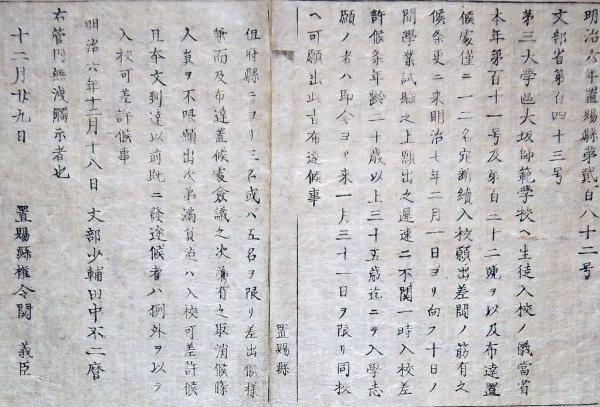 明治六年置賜縣第貳百八十二号
文部省第百四十三号
第三大学區大坂師範学校ヘ生徒入校ノ儀當省
本年第百十一号及第百二十二號ヲ以及布達置
候處僅ニ一二名宛断續入校願出差閊ノ筋有之
候条更ニ来明治七年二月一日ヨリ向フ十日ノ
間學業試驗之上願出之遲速ニ不関一時入校差
許候条年齡二十歳以上三十五歳迄ニテ入學志
願ノ者ハ即今ヨリ来一月三十一日ヲ限リ同校
ヘ可願出此旨布達候事
置賜縣
但府縣ニヨリ三名或ハ五名ヲ限リ差出候様
兼而及布達置候處僉議之次第有之取消候條
人員ヲ不限願出次第満員迄ハ入校可差許候
且本文到達以前既ニ發途候者ハ例外ヲ以テ
入校可差許候事
明治六年十二月十八日 文部少輔田中不二麿
右管内無洩觸示者也
十二月廿九日 置賜縣権令関 義臣